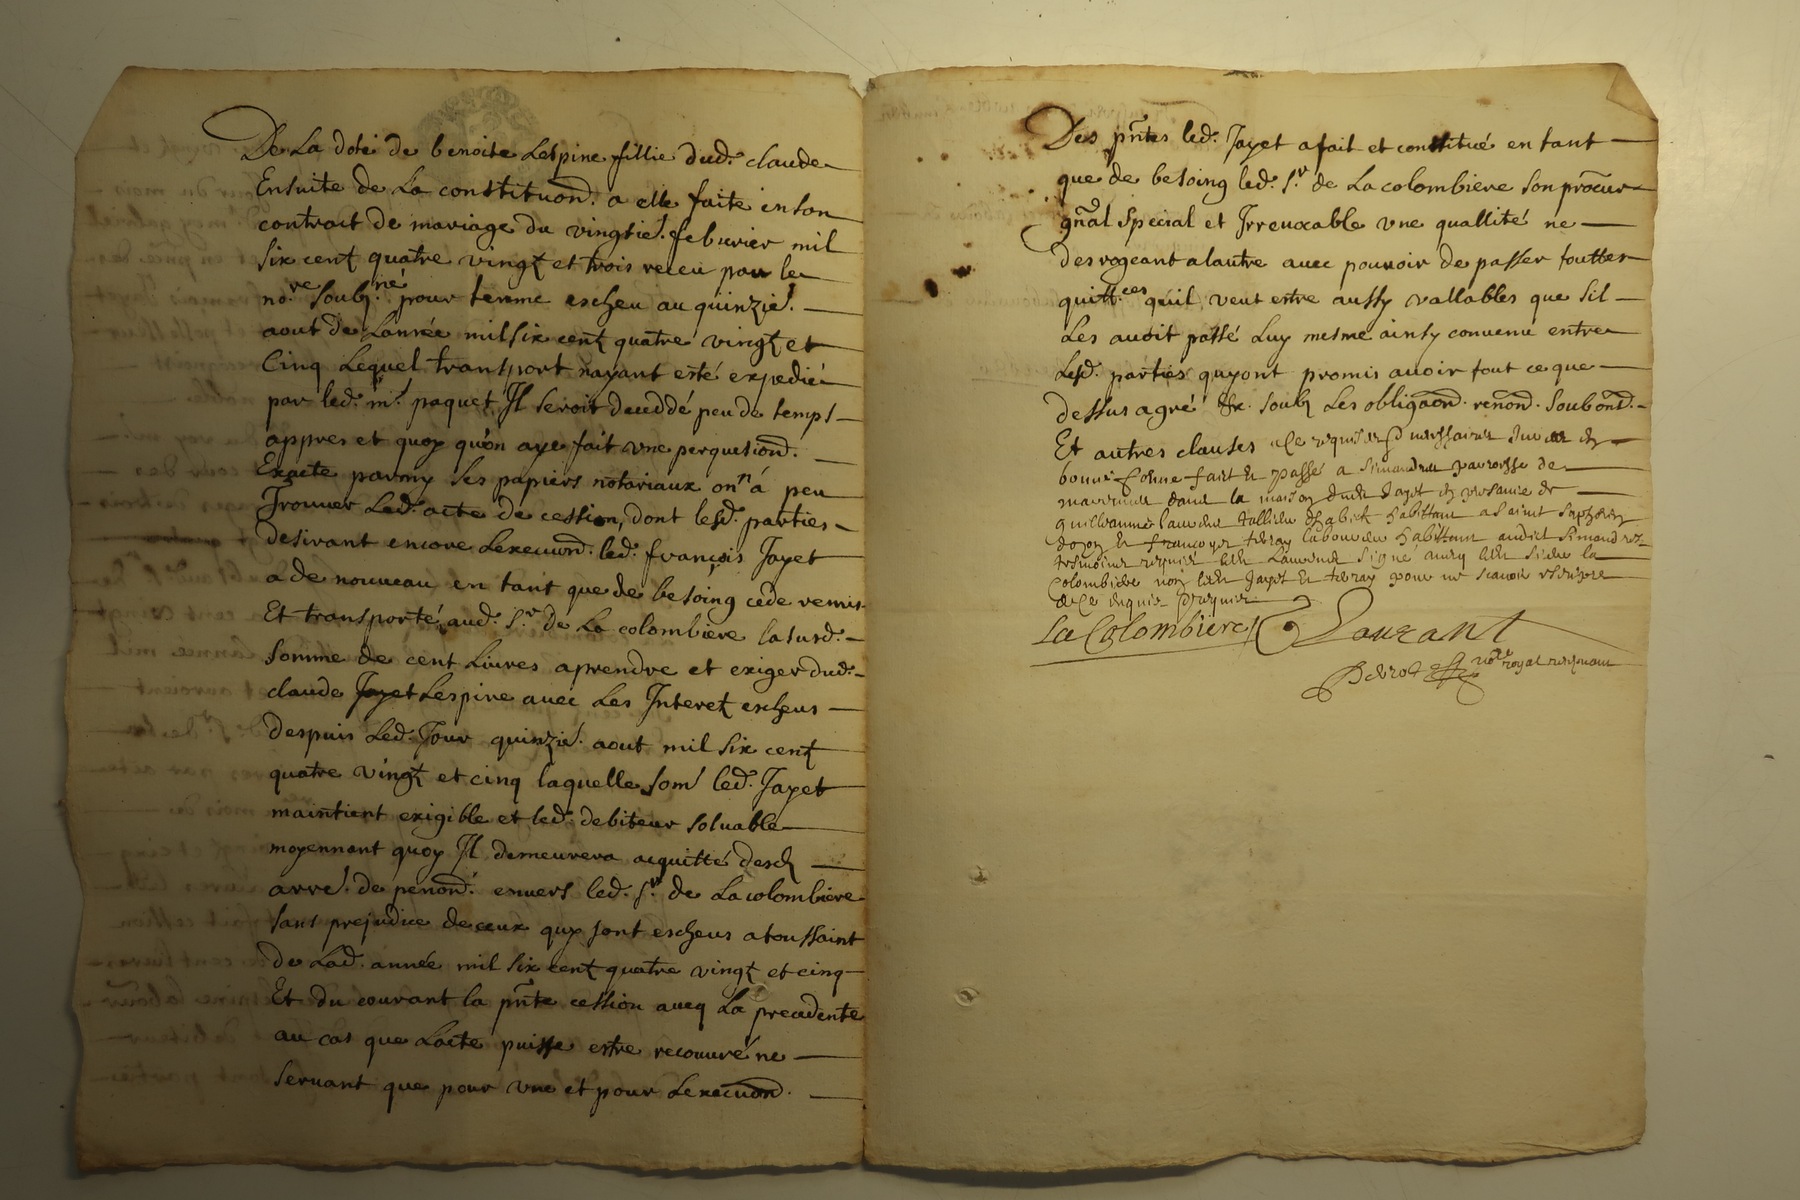 De La dote de benoite Lespine fillie dud. claude
Ensuite de La constituon̄d. a elle faite en son
contrait de mariage du vingtie. feburier mil
six centz quatre vingtz et trois receu par le
no.re soubz.né pour terme escheu au quinzie.
aout de Lannée mil six centz quatre vingtz et
Cinq Lequel transport nayant esté expedié
par led. m.e paquet Il seroit deceddé peu de temps
appres et quoy qu'on aye fait une perquesiond.
Exacte parmy ses papiers notariaux on n'a peu
Trouver Led. acte de cession, dont lesd. parties
desirant encore Lexecuond. led. françois Jayet
a de nouveau en tant que de besoing cede remis
Et transporté aud. s.r de La colombiere la susd.
somme de cent Livres aprendre et exiger dud.
claude Jayet Lespine avec Les Interetz escheus
despuis Led. Jour quinzie. aout mil six centz
quatre vingtz et cinq laquelle som̄e led. Jayet
maintient exigible et led. debiteur solvable
moyennant quoy Il demeurera acquitté desd.
arre. de penond. envers led. s.r de La colombiere
sans prejudice de ceux quy sont escheus a toussaint
de Lad. année mil six centz quatre vingtz et cinq
Et du courant la pn̄te cession avecq La precedente
au cas que Lacte puisse estre recouvré ne
servant que pour une et pour Lexecuond.
Des pn̄tes led. Jayet a fait et constitué en tant
que de besoing led. s.r de La colombiere son procur
gn̄al special et Irrevocable une quallité ne
desrogeant a lautre avec pouvoir de passer touttes
quitt.ces quil veut estre aussy vallables que sil
Les avoit passé Luy mesme ainsy convenu entre
Lesd. parties quy ont promis avoir tout ce que
dessus agré &c. soubz Les obligaond. renond. soubond.
Et autres clauses a ce requises
bonne forme fait et passé a Simandre parroisse de
dans la maison dud. Jayet en presance de
guilleaume habittant a saint
et francoys teray laboureur habittant audict Simandres
tesmoins requis led. Laurand signé avecq led. sieur la
Colombière non led. Jayet et teray pour ne scavoir escripre
de ce enquis et requis
La Colombiere Laurant
no.re royal